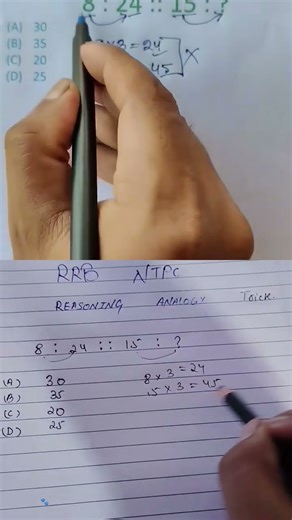 8 : 24 :: 15 : ?
(A) 30
(B) 35
(C) 20
(D) 25
×3 = 24
45
RRB NTPC
REASONING ANALOGY Trick.
8 : 24 :: 15 : ?
(A) 30
(B) 35
(C) 20
(D) 25
8 × 3 = 24
15 × 3 = 45